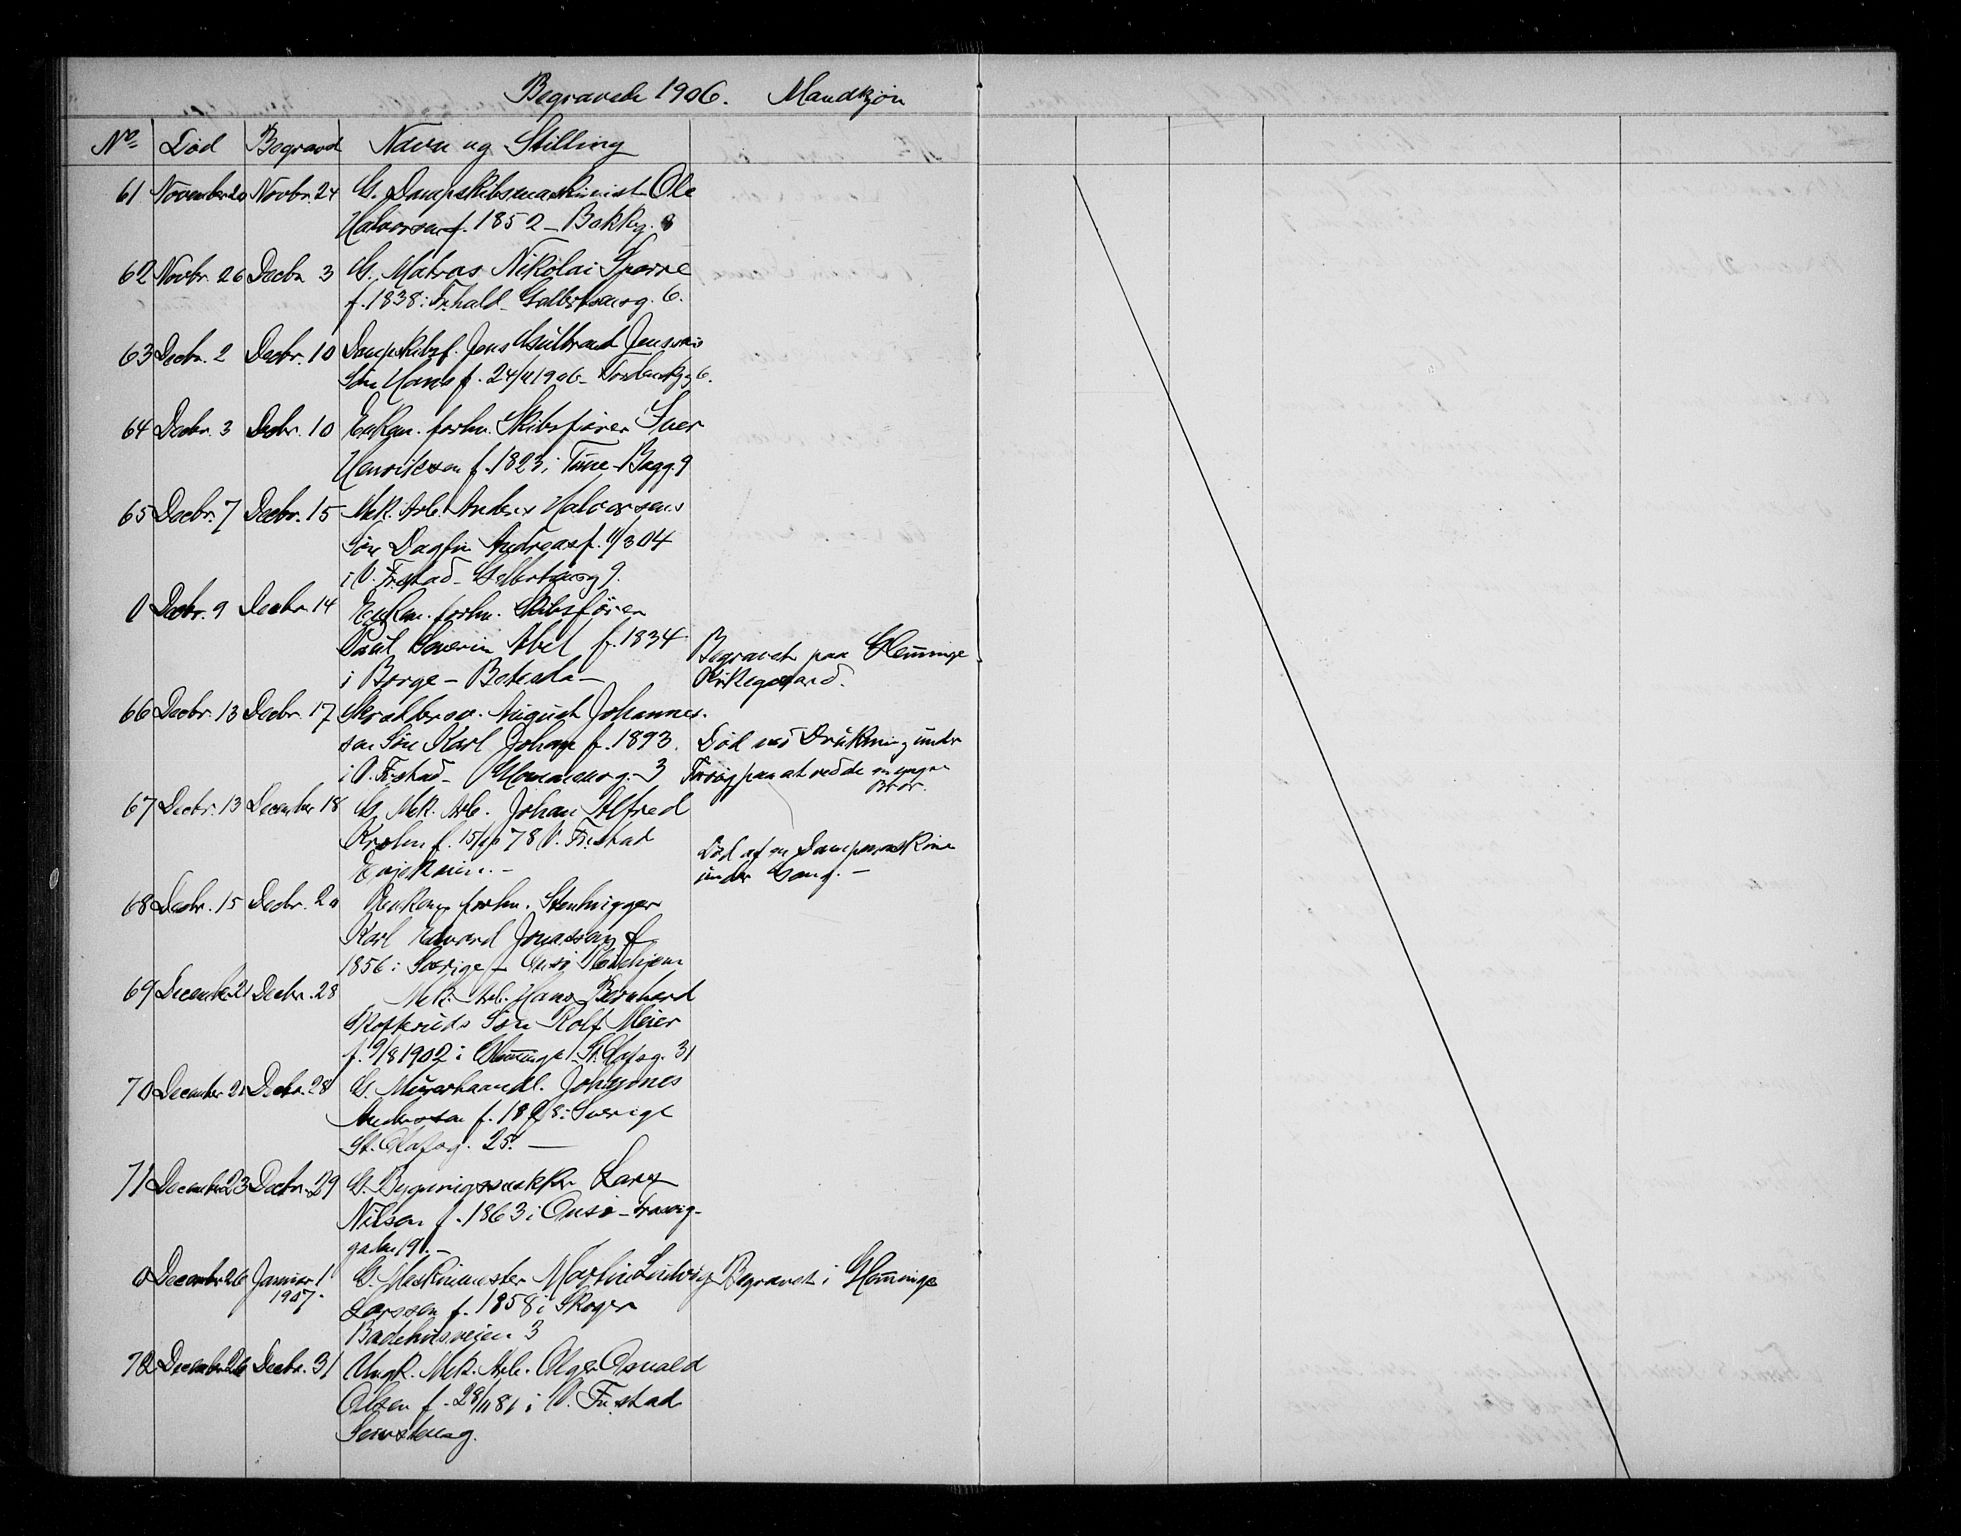 Begravede 1906. Mandkjøn
No. Død Begravd Navn og Stilling
61 November 20 Novbr. 24 G. Dampskibsmaskinist Ole
Halvorsen f. 1852 - Bakkg. 8
62 Novbr. 26 Decbr 3 G. Matros Nikolai Sparre
f. 1838 i Fr.hald - Galbertsensg. 6.
63 Decbr. 2 Decbr. 10 Dampskibsf. Jens Jenssens
Søn Hans f. 24/11 1906 - Tordenskg 6.
64 Decbr. 3 Decbr. 10 Enkem. forhv. Skibsfører Iver
Henriksen f. 1823 i Tune - Bagg. 9
65 Decbr. 7 Decbr. 15 Mek. Arb. Anders Halvorsens
Søn Dagfin Andreas f. 04
i V. Fr.stad - Galbertsensg 9.
0 Decbr. 9 Decbr. 14 Enkem. forhv. Skibsfører
Paul Severin Abel f. 1834
i Borge -
Begravet paa Glemminge
Kirkegaard.
66 Decbr. 13 Decbr. 17 August Johannes-
sen Søn Karl Johan f. 1893.
i V. Fr.stad - Glommensg. 3
Død ved Drukning under
Forsøg paa at redde en yngre
Bror.
67 Decbr. 13 December 18 G. Mek. Arb. Johan Alfred
f. 15/10 78 V. Fr.stad
Død af en Dampmaskine
under Gang. -
68 Decbr. 15 Decbr. 20 Enkem. forhv. Stenhugger
Karl Edvard Jonassen f
1856 i Sverige - Onsø
69 December 21 Decbr. 28 Mek. Arb. Hans Bernhard
Søn Rolf Meier
f. 9/8 1902 i Glemminge - St. Olafsg. 31
70 December 21 Decbr. 28 G. Murerhaandl. Johannes
Andersson f. i Sverige
St. Olafsg. 25. -
71 December 23 Decbr. 29 G. Bygningssnekker Lars
Nilsen f. 1863 i Onsø -
gaden 19. -
0 December 26 Januar 1 G. Maskinmester Martin Ludvig Begravet i Glemminge
1907. Larssen f. 1858 i Skoger
Badehusveien 3
72 December 26 Decbr. 31 Ungk. Mek. Arb. Olger Osvald
Olsen f. 28/11 81 i V. Fr.stad